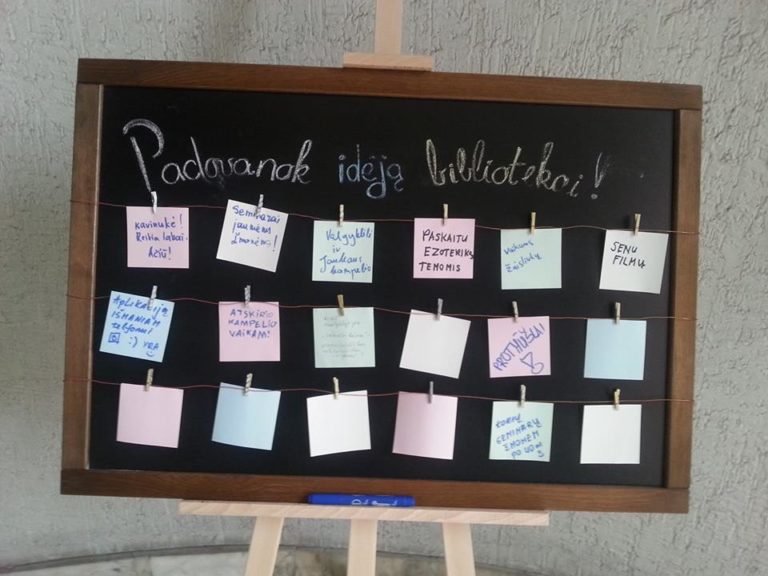 Padovanok idėją bibliotekai!
Kavinukė!
Reikia labai.
Ačiū!
Seminarai
jauniems
žmonėms!
Valgyklėlė
ir
Jaukaus
kampelio
PASKAITŲ
EZOTERIKŲ
TEMOMIS
Vaikams
žaisliukų
SENŲ
FILMŲ
Aplikaciją
išmaniam
telefonui
:)
ATSKIRO
KAMPELIO
VAIKAM!
PROTMŪŠIAI
SEMINARŲ
ŽMONĖM
PO 40 M